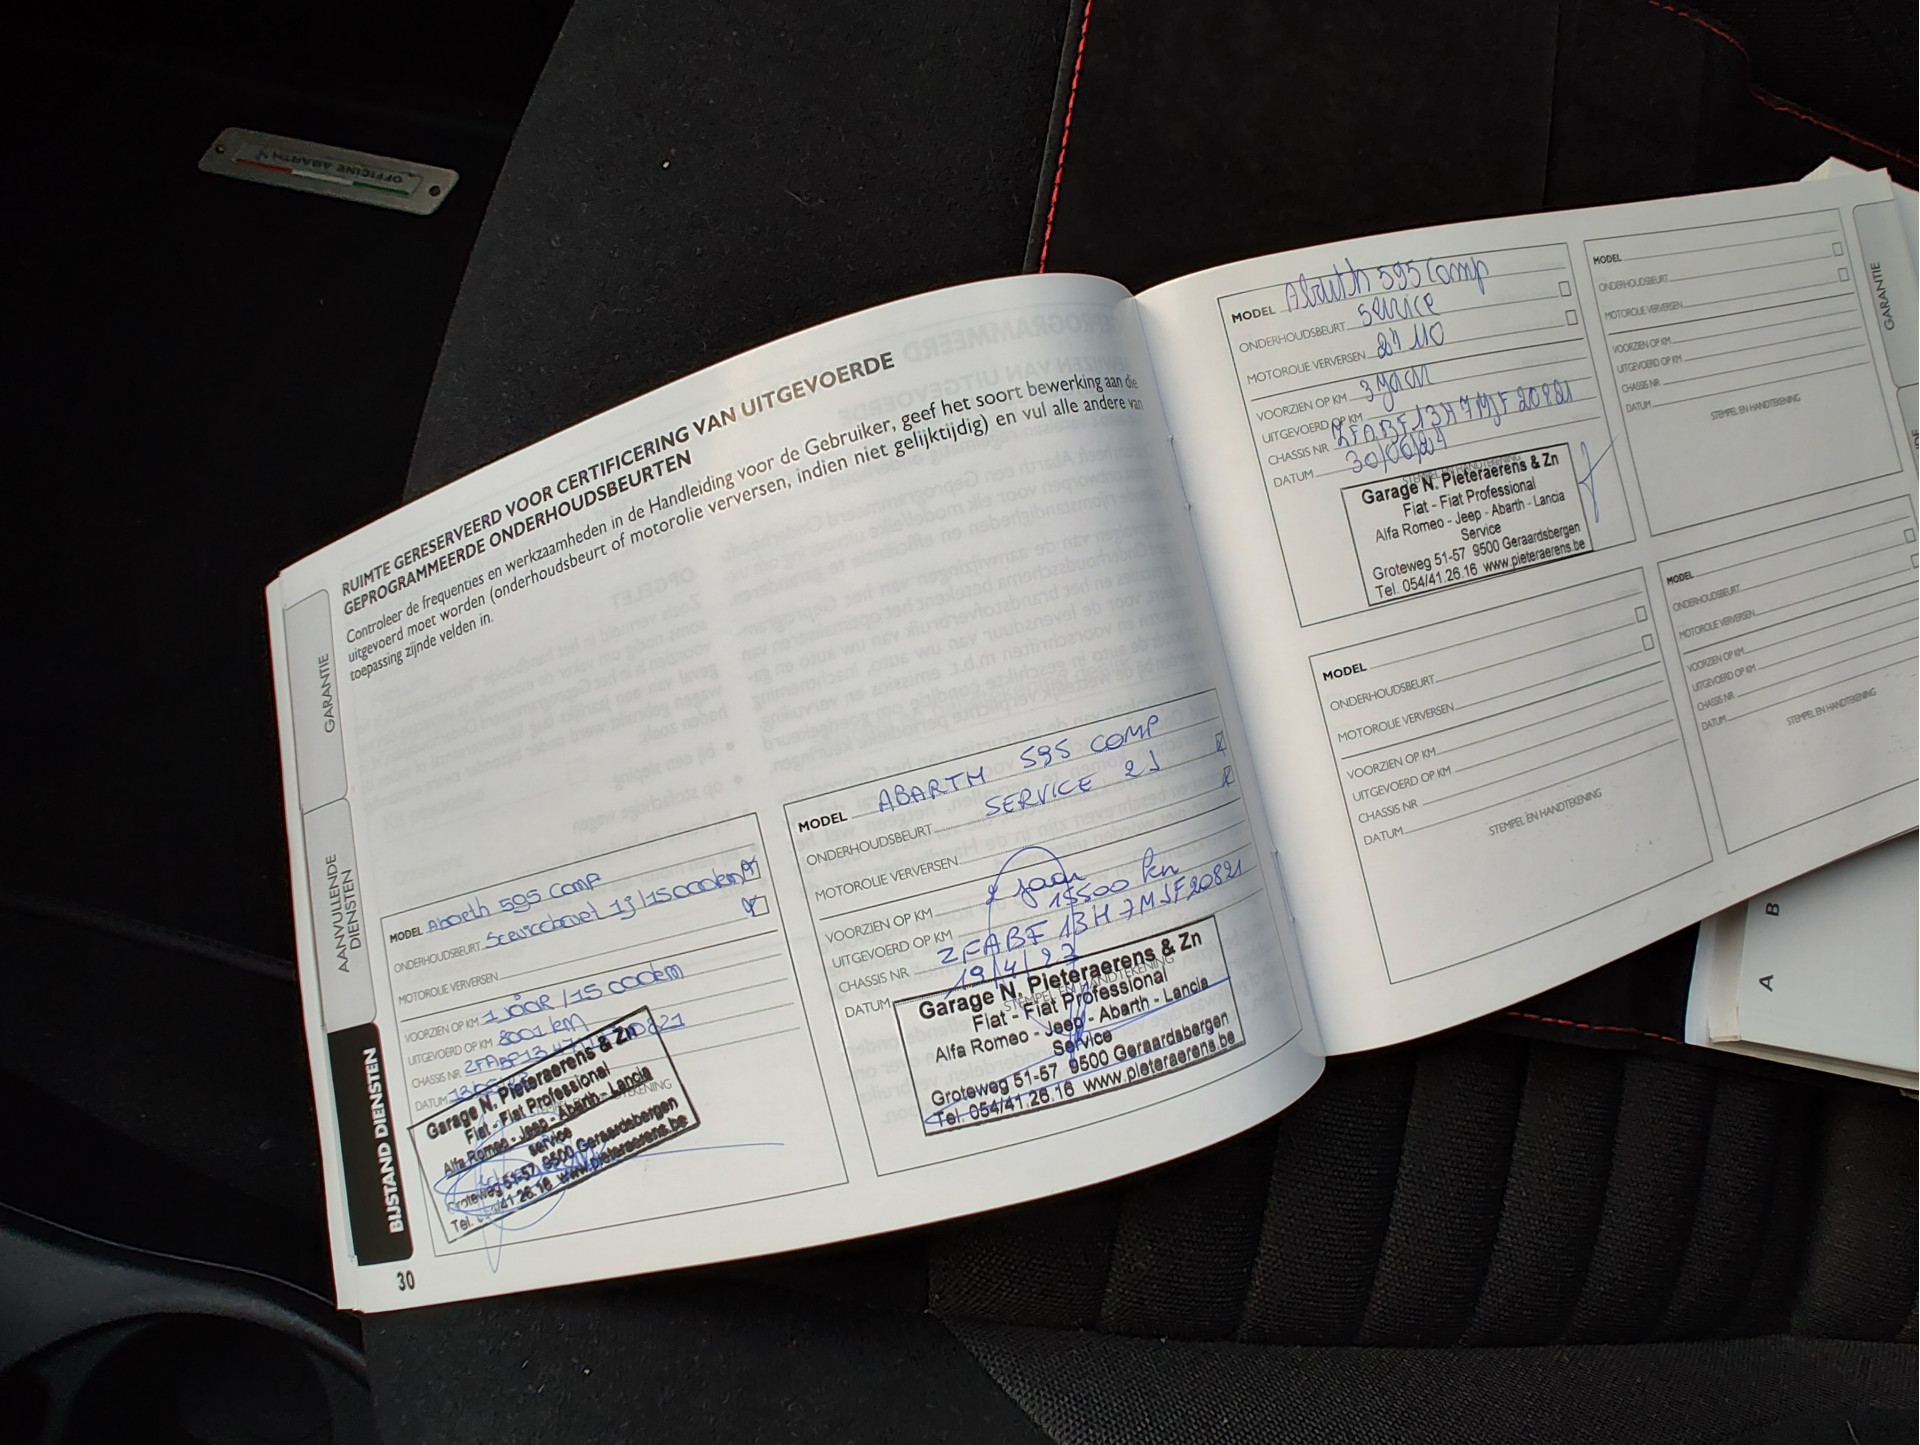 OFFICINE ABARTH
RUIMTE GERESERVEERD VOOR CERTIFICERING VAN UITGEVOERDE
GEPROGRAMMEERDE ONDERHOUDSBEURTEN
Controleer de frequenties en werkzaamheden in de Handleiding voor de Gebruiker, geef het soort bewerking aan die
uitgevoerd moet worden (onderhoudsbeurt of motorolie verversen, indien niet gelijktijdig) en vul alle andere van
toepassing zijnde velden in.
GARANTIE
AANVULLENDE
DIENSTEN
BIJSTAND DIENSTEN
MODEL Abarth 595 comp
ONDERHOUDSBEURT Servicebeurt 1j/15000km
MOTOROLIE VERVERSEN
VOORZIEN OP KM 1 JAAR/15000km
UITGEVOERD OP KM 8001 km
CHASSIS NR
DATUM
Garage N. Pieteraerens & Zn
Fiat - Fiat Professional
Alfa Romeo - Jeep - Abarth - Lancia
Service
Groteweg 51-57 9500 Geraardsbergen
Tel. 41.26.16 www.pieteraerens.be
30
MODEL ABARTH 595 COMP
ONDERHOUDSBEURT SERVICE 2J
MOTOROLIE VERVERSEN
VOORZIEN OP KM 2 jaar
UITGEVOERD OP KM 15500 km
CHASSIS NR ZFABF13H7MJF20821
DATUM 19/4/23
STEMPEL EN HANDTEKENING
Garage N. Pieteraerens & Zn
Fiat - Fiat Professional
Alfa Romeo - Jeep - Abarth - Lancia
Service
Groteweg 51-57 9500 Geraardsbergen
Tel. 054/41.26.16 www.pieteraerens.be
MODEL Abarth 595 comp
ONDERHOUDSBEURT service
MOTOROLIE VERVERSEN
VOORZIEN OP KM 3 jaar
UITGEVOERD OP KM
CHASSIS NR ZFABF13H7MJF20821
DATUM 30/06/24
STEMPEL EN HANDTEKENING
Garage N. Pieteraerens & Zn
Fiat - Fiat Professional
Alfa Romeo - Jeep - Abarth - Lancia
Service
Groteweg 51-57 9500 Geraardsbergen
Tel. 054/41.26.16 www.pieteraerens.be
MODEL
ONDERHOUDSBEURT
MOTOROLIE VERVERSEN
VOORZIEN OP KM
UITGEVOERD OP KM
CHASSIS NR
DATUM
STEMPEL EN HANDTEKENING
MODEL
ONDERHOUDSBEURT
MOTOROLIE VERVERSEN
VOORZIEN OP KM
UITGEVOERD OP KM
CHASSIS NR
DATUM
STEMPEL EN HANDTEKENING
MODEL
ONDERHOUDSBEURT
MOTOROLIE VERVERSEN
VOORZIEN OP KM
UITGEVOERD OP KM
CHASSIS NR
DATUM
STEMPEL EN HANDTEKENING
GARANTIE
A B